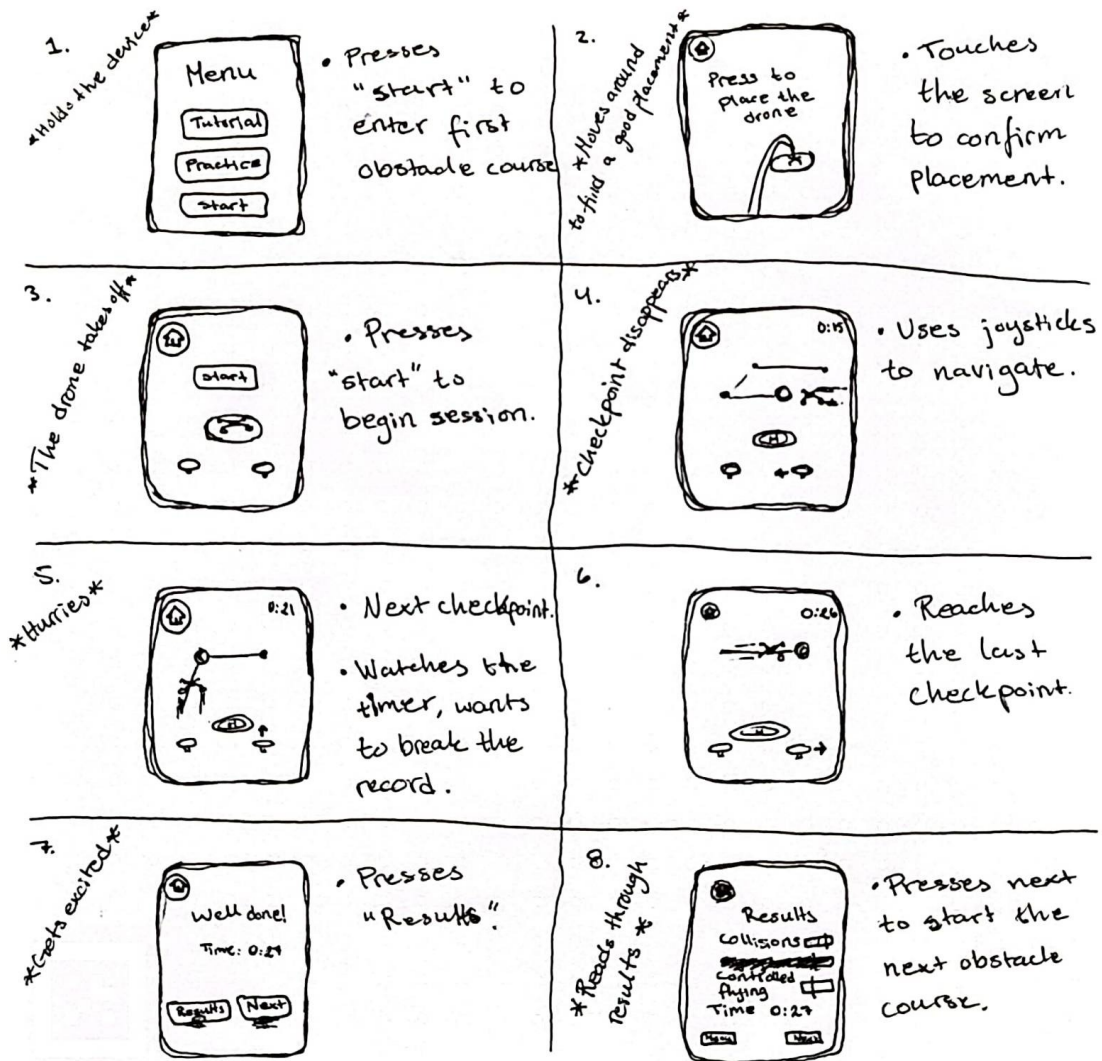 1.
*Holds the device*
Menu
Tutorial
Practice
Start
• Presses
"start" to
enter first
obstacle course
2.
*Moves around
to find a good placement*
Press to
place the
drone
• Touches
the screen
to confirm
placement.
3.
*The drone takes off*
start
• Presses
"start" to
begin session.
4.
*Checkpoint disappears*
0:15
H
• Uses joysticks
to navigate.
5.
*Hurries*
0:21
H
• Next checkpoint.
• Watches the
timer, wants
to break the
record.
6.
0:26
H
• Reaches
the last
checkpoint.
7.
*Gets excited*
Well done!
Time: 0:27
Results
Next
• Presses
"Results".
8.
*Reads through
results*
Results
Collisions
controlled
flying
Time 0:27
Next
• Presses next
to start the
next obstacle
course.